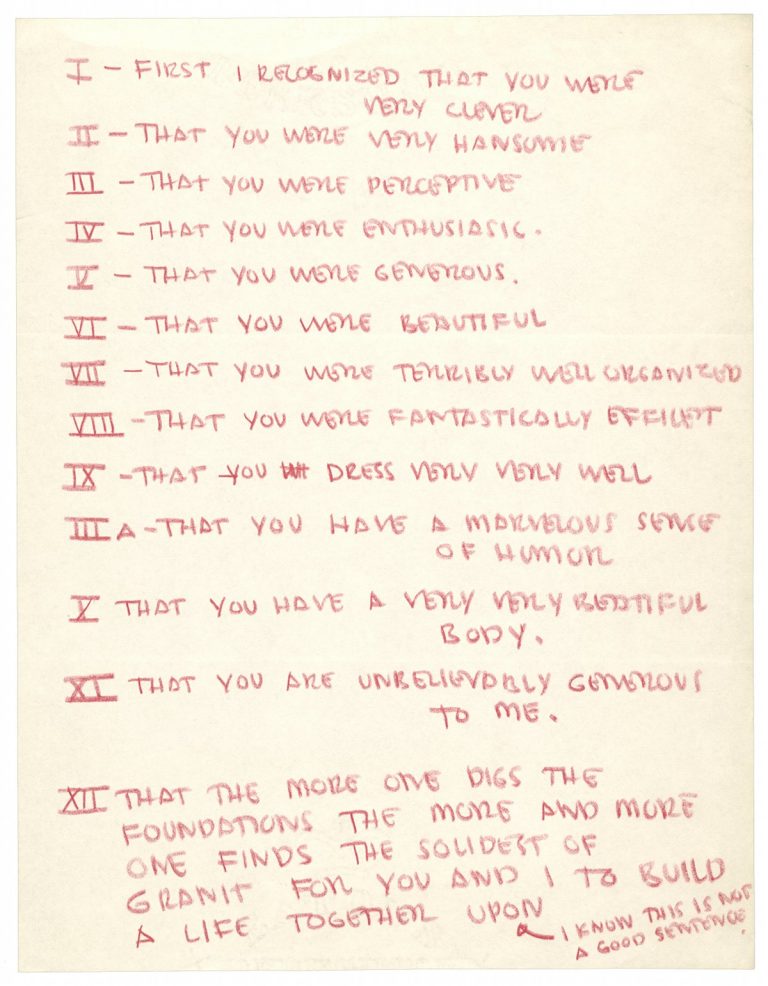 I – FIRST I RECOGNIZED THAT YOU WERE
VERY CLEVER
II – THAT YOU WERE VERY HANSOME
III – THAT YOU WERE PERCEPTIVE
IV – THAT YOU WERE ENTHUSIASIC.
V – THAT YOU WERE GENEROUS.
VI – THAT YOU WERE BEAUTIFUL
VII – THAT YOU WERE TERRIBLY WELL ORGANIZED
VIII – THAT YOU WERE FANTASTICALLY EFFICIET
IX – THAT YOU DRESS VERY VERY WELL
III A – THAT YOU HAVE A MARVELOUS SENSE
OF HUMOR
X THAT YOU HAVE A VERY VERY BEATIFUL
BODY.
XI THAT YOU ARE UNBELIEVABLY GENEROUS
TO ME.
XII THAT THE MORE ONE DIGS THE
FOUNDATIONS THE MORE AND MORE
ONE FINDS THE SOLIDEST OF
GRANIT FOR YOU AND I TO BUILD
A LIFE TOGETHER UPON
I KNOW THIS IS NOT
A GOOD SENTENCE.